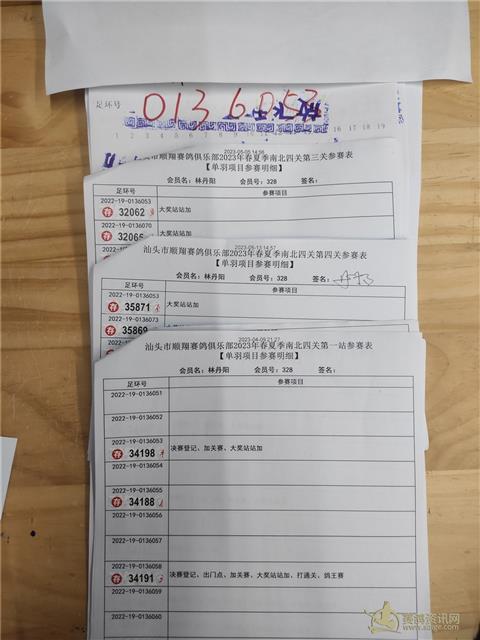 足环号
0136053
1 2 3 4 5 6 7 8 9 10
16 17 18 19
2023-05-05 14:56
汕头市顺翔赛鸽俱乐部2023年春夏季南北四关第三关参赛表
【单羽项目参赛明细】
会员名：林丹阳 会员号：328 签名：
足环号 参赛项目
2022-19-0136053
存 32062 大奖站站加
2022-19-0136070
存 大奖站站加
2023-05-13 14:57
汕头市顺翔赛鸽俱乐部2023年春夏季南北四关第四关参赛表
【单羽项目参赛明细】
会员名：林丹阳 会员号：328 签名：
足环号 参赛项目
2022-19-0136053
存 35871 大奖站站加
2022-19-0136073
存 35869 大奖站站加
2023-04-09 21:27
汕头市顺翔赛鸽俱乐部2023年春夏季南北四关第一站参赛表
【单羽项目参赛明细】
会员名：林丹阳 会员号：328 签名：
足环号 参赛项目
2022-19-0136051
2022-19-0136052
2022-19-0136053
存 34198 决赛登记、加关赛、大奖站站加
2022-19-0136055
存 34188
2022-19-0136056
2022-19-0136057
2022-19-0136058
存 34191 决赛登记、出门点、加关赛、大奖站站加、打通关、鸽王赛
2022-19-0136059
2022-19-0136060